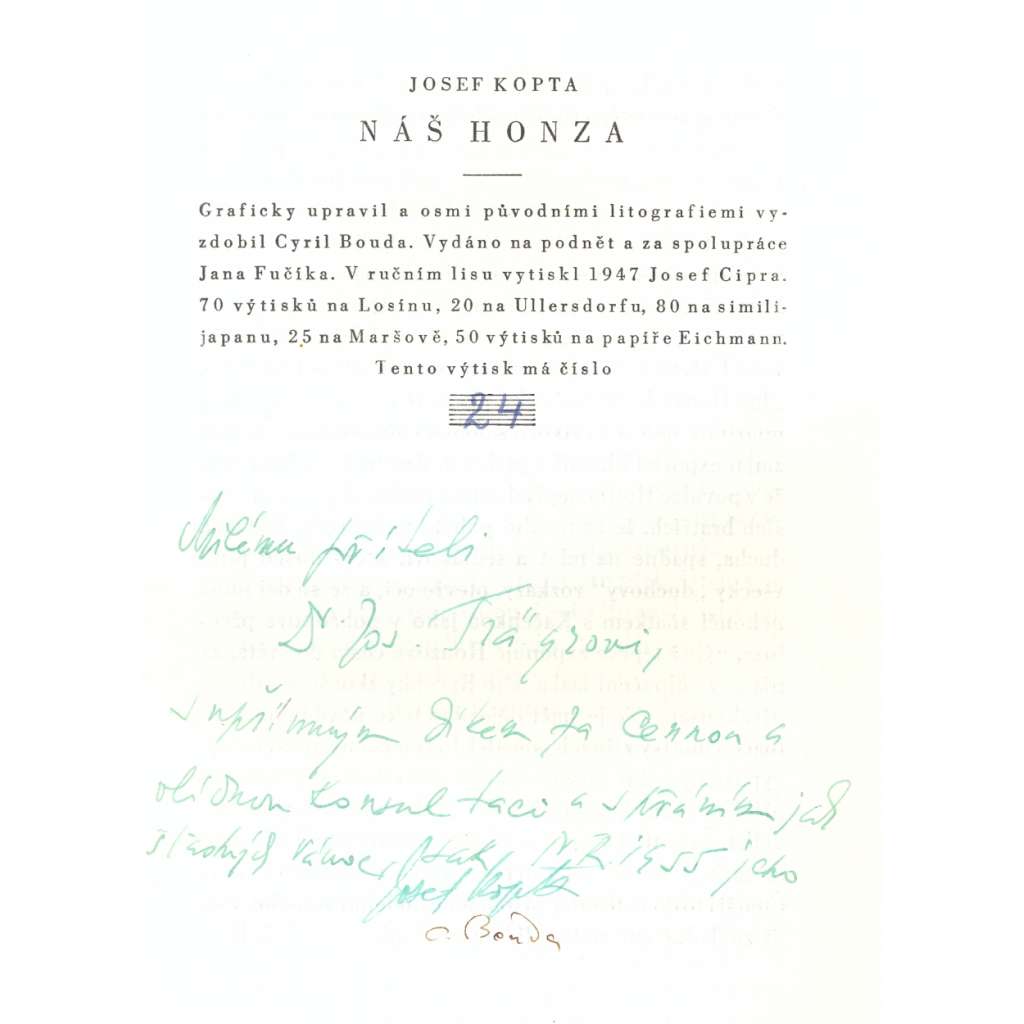 JOSEF KOPTA
NÁŠ HONZA
Graficky upravil a osmi původními litografiemi vy-
zdobil Cyril Bouda. Vydáno na podnět a za spolupráce
Jana Fučíka. V ručním lisu vytiskl 1947 Josef Cipra.
70 výtisků na Losínu, 20 na Ullersdorfu, 80 na simili-
japanu, 25 na Maršově, 50 výtisků na papíře Eichmann.
Tento výtisk má číslo
24
Milému příteli
Dr Jos. Trägrovi,
s upřímným díkem za cennou a
vlídnou konsultaci a s přáním jak
šťastných vánoc, tak N. R. 1955 jeho
Josef Kopta
C. Bouda